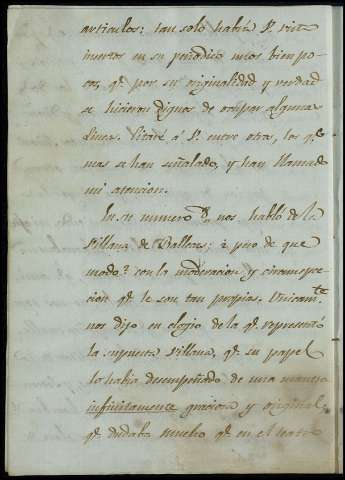 articulos: tan solo habia Vd. visto
insertos en su periodico unos bien po-
cos, qe. por su originalidad y verdad
se hicieron dignos de ocupar algunas
lineas. Citaré á Vd. entre otros, los qe.
mas se han señalado, y han llamado
mi atencion.
En su numero 8 nos habló de la
Villana de Vallecas; ¿pero de que
modo? con la moderacion y circunspec-
cion qe. le son tan propias. Unicamte.
nos dijo en elogio de la qe. representó
la supuesta Villana, qe. su papel
lo habia desempeñado de una manera
infinitamente graciosa y original,
qe. dudaba mucho qe. en el teatro